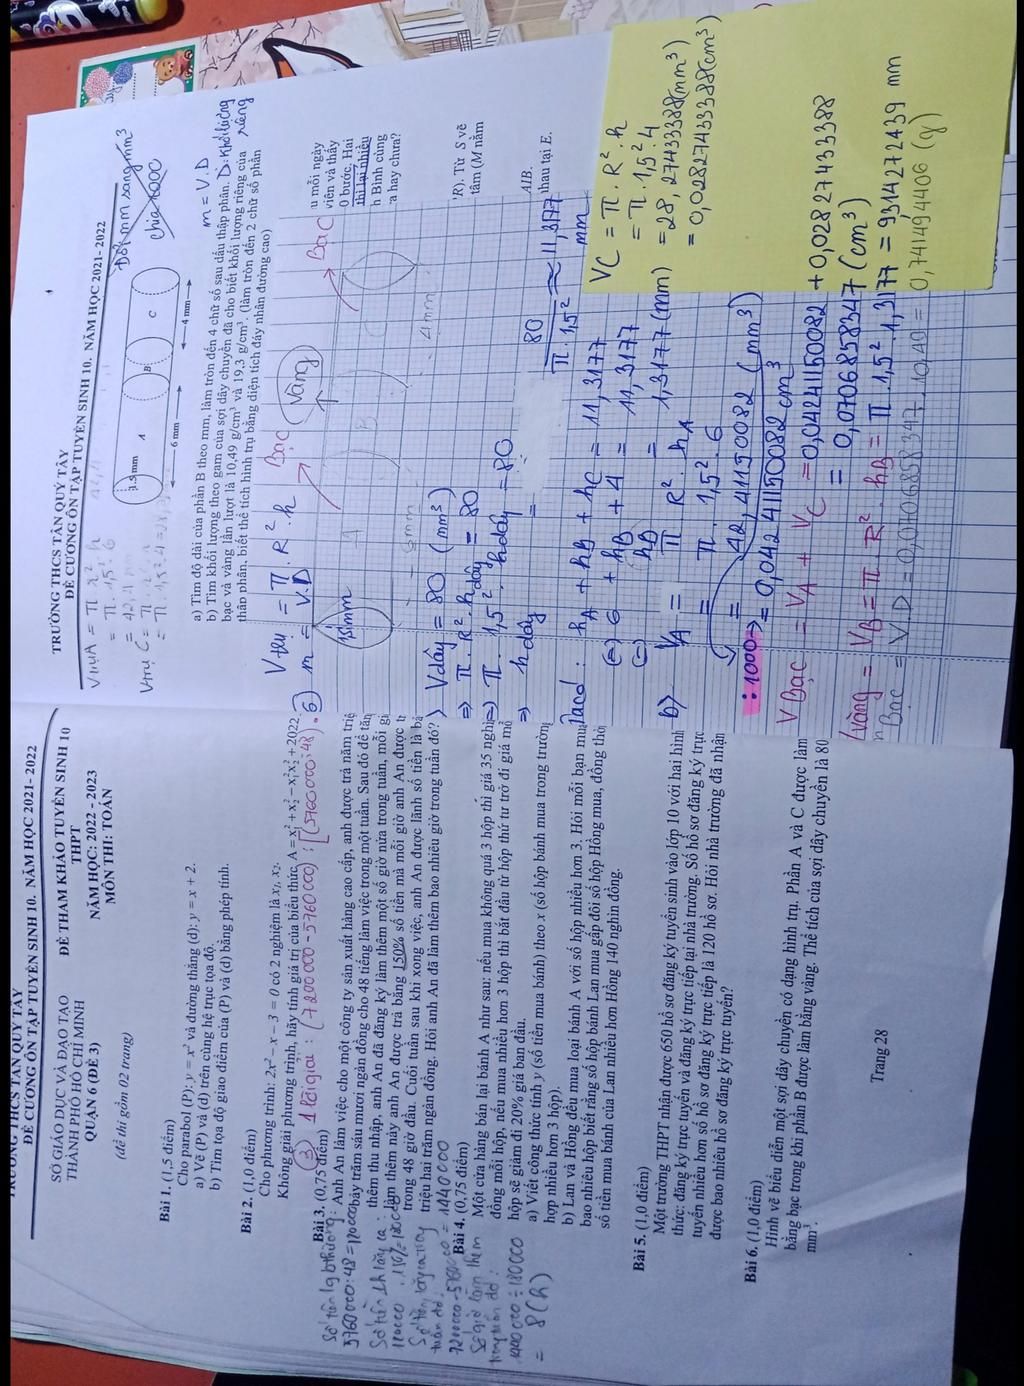 TRƯỜNG THCS TÂN QUÝ TÂY
ĐỀ CƯƠNG ÔN TẬP TUYỂN SINH 10. NĂM HỌC 2021- 2022
SỞ GIÁO DỤC VÀ ĐẠO TẠO
THÀNH PHỐ HỒ CHÍ MINH
QUẬN 6 (ĐỀ 3)
(đề thi gồm 02 trang)
ĐỀ THAM KHẢO TUYỂN SINH 10
THPT
NĂM HỌC: 2022 - 2023
MÔN THI: TOÁN
Bài 1. (1,5 điểm)
Cho parabol (P): y = x² và đường thẳng (d): y = x + 2.
a) Vẽ (P) và (d) trên cùng hệ trục tọa độ.
b) Tìm tọa độ giao điểm của (P) và (d) bằng phép tính.
Bài 2. (1,0 điểm)
Cho phương trình: 2x² − x − 3 = 0 có 2 nghiệm là x₁, x₂.
Không giải phương trình, hãy tính giá trị của biểu thức A = x₁² + x₂² − x₁²x₂² + 2022.
Bài 3. (0,75 điểm)
③ 1 lời giải : (7200000 - 5760000) : [(5760000:48).
Anh An làm việc cho một công ty sản xuất hàng cao cấp, anh được trả năm triệ
bảy trăm sáu mươi ngàn đồng cho 48 tiếng làm việc trong một tuần. Sau đó để tăn
thêm thu nhập, anh An đã đăng ký làm thêm một số giờ nữa trong tuần, mỗi gi
làm thêm này anh An được trả bằng 150% số tiền mà mỗi giờ anh An được t
trong 48 giờ đầu. Cuối tuần sau khi xong việc, anh An được lãnh số tiền là bả
triệu hai trăm ngàn đồng. Hỏi anh An đã làm thêm bao nhiêu giờ trong tuần đó?
Số tiền 1g bthường:
5760000:48=120000
Số tiền 1h tăng ca :
120000 . 150%=180000
tuần đó:
7200000-5760000 = 1440000
Số giờ làm thêm
trong tuần đó:
1440000 : 180000
= 8(h)
Bài 4. (0,75 điểm)
Một cửa hàng bán lại bánh A như sau: nếu mua không quá 3 hộp thì giá 35 nghì
đồng mỗi hộp, nếu mua nhiều hơn 3 hộp thì bắt đầu từ hộp thứ tư trở đi giá mỗ
hộp sẽ giảm đi 20% giá ban đầu.
a) Viết công thức tính y (số tiền mua bánh) theo x (số hộp bánh mua trong trườn
hợp nhiều hơn 3 hộp).
b) Lan và Hồng đều mua loại bánh A với số hộp nhiều hơn 3. Hỏi mỗi bạn mu
bao nhiêu hộp biết rằng số hộp bánh Lan mua gấp đôi số hộp Hồng mua, đồng thờ
số tiền mua bánh của Lan nhiều hơn Hồng 140 nghìn đồng.
Bài 5. (1,0 điểm)
Một trường THPT nhận được 650 hồ sơ đăng ký tuyển sinh vào lớp 10 với hai hình
thức: đăng ký trực tuyến và đăng ký trực tiếp tại nhà trường. Số hồ sơ đăng ký trực
tuyến nhiều hơn số hồ sơ đăng ký trực tiếp là 120 hồ sơ. Hỏi nhà trường đã nhận
được bao nhiêu hồ sơ đăng ký trực tuyến?
Bài 6. (1,0 điểm)
Hình vẽ biểu diễn một sợi dây chuyền có dạng hình trụ. Phần A và C được làm
bằng bạc trong khi phần B được làm bằng vàng. Thể tích của sợi dây chuyền là 80
mm³.
Trang 28
TRƯỜNG THCS TÂN QUÝ TÂY
ĐỀ CƯƠNG ÔN TẬP TUYỂN SINH 10. NĂM HỌC 2021- 2022
V trụ A = π r² h
= π . 1,5² . 6
V trụ C =
1.5 mm
A
B
C
6 mm
4 mm
Đổi mm sang mm³
chia 1000
m = V.D
D: khối lượng
riêng
a) Tìm độ dài của phần B theo mm, làm tròn đến 4 chữ số sau dấu thập phân.
b) Tìm khối lượng theo gam của sợi dây chuyền đã cho biết khối lượng riêng của
bạc và vàng lần lượt là 10,49 g/cm³ và 19,3 g/cm³. (làm tròn đến 2 chữ số phần
thân phân, biết thể tích hình trụ bằng diện tích đáy nhân đường cao)
V trụ = π . R² . h
6) m = V.D
Bạc
Vàng
Bạc
1,5mm
A
B
6mm
4mm
u mỗi ngày
viên và thấy
0 bước. Hai
thì lại nhiều
h Bình cùng
a hay chưa?
'R). Từ S vẽ
tâm (M nằm
AIB.
nhau tại E.
) Vdây = 80 (mm³)
=> π . R² . hdây = 80
=> π . 1,5² . hdây = 80
=> hdây = 80 / π . 1,5² ≈ 11,3177 mm
Ta có : hA + hB + hC = 11,3177
(=) 6 + hB + 4 = 11,3177
(=) hB = 1,3177 (mm)
b) VA = π . R² . hA
= π . 1,5² . 6
= 42,41150082 (mm³)
:1000 => = 0,04241150082 cm³
VC = π . R² . h
= π . 1,5² . 4
= 28,27433388(mm³)
= 0,02827433388(cm³)
V Bạc = VA + VC = 0,04241150082 + 0,02827433388
= 0,0706858347 (cm³)
Vàng = VB = π . R² . hB = π . 1,5² . 1,3177 = 9,314272439 mm
m Bạc = V . D = 0,0706858347 . 10,49 = 0,741494406 (g)